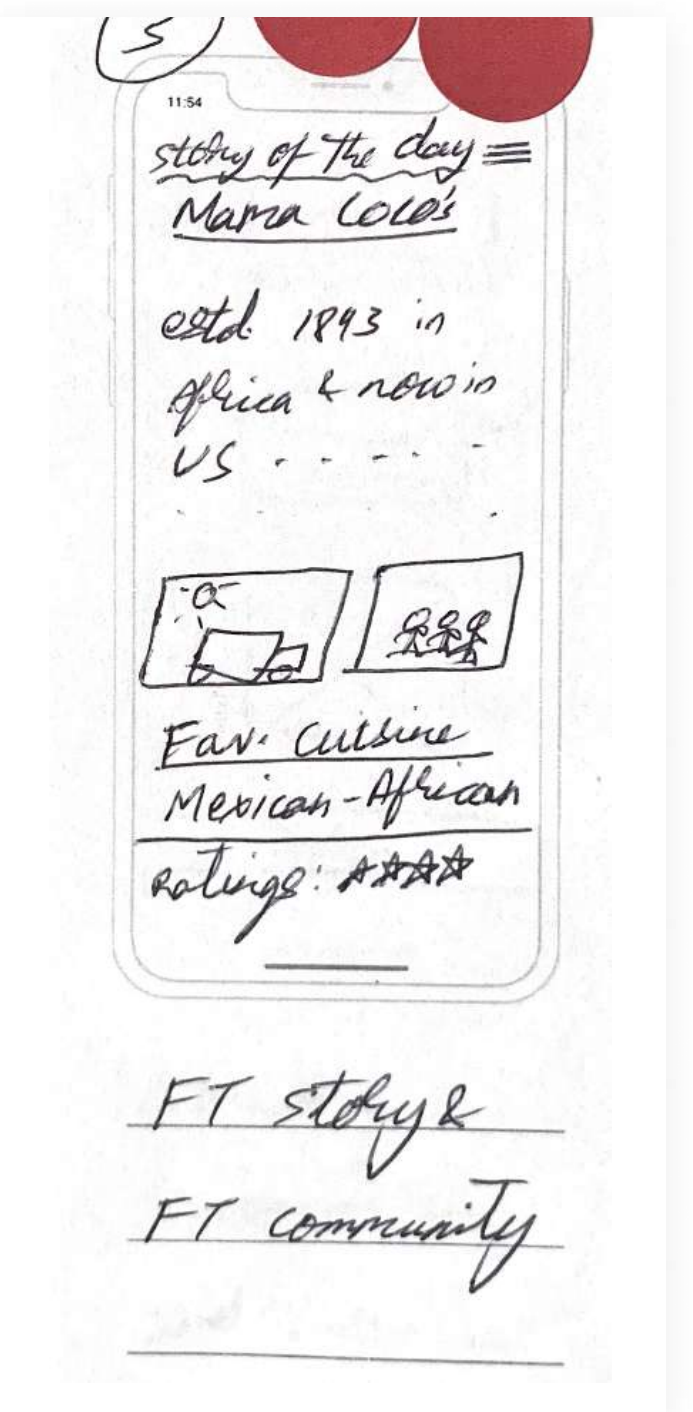 5
11:54
Story of The day
Mama Coco's
estd. 1893 in
Africa & now in
US . . . . .
Fav. Cuisine
Mexican-African
Ratings: ★★★★
FT story &
FT community